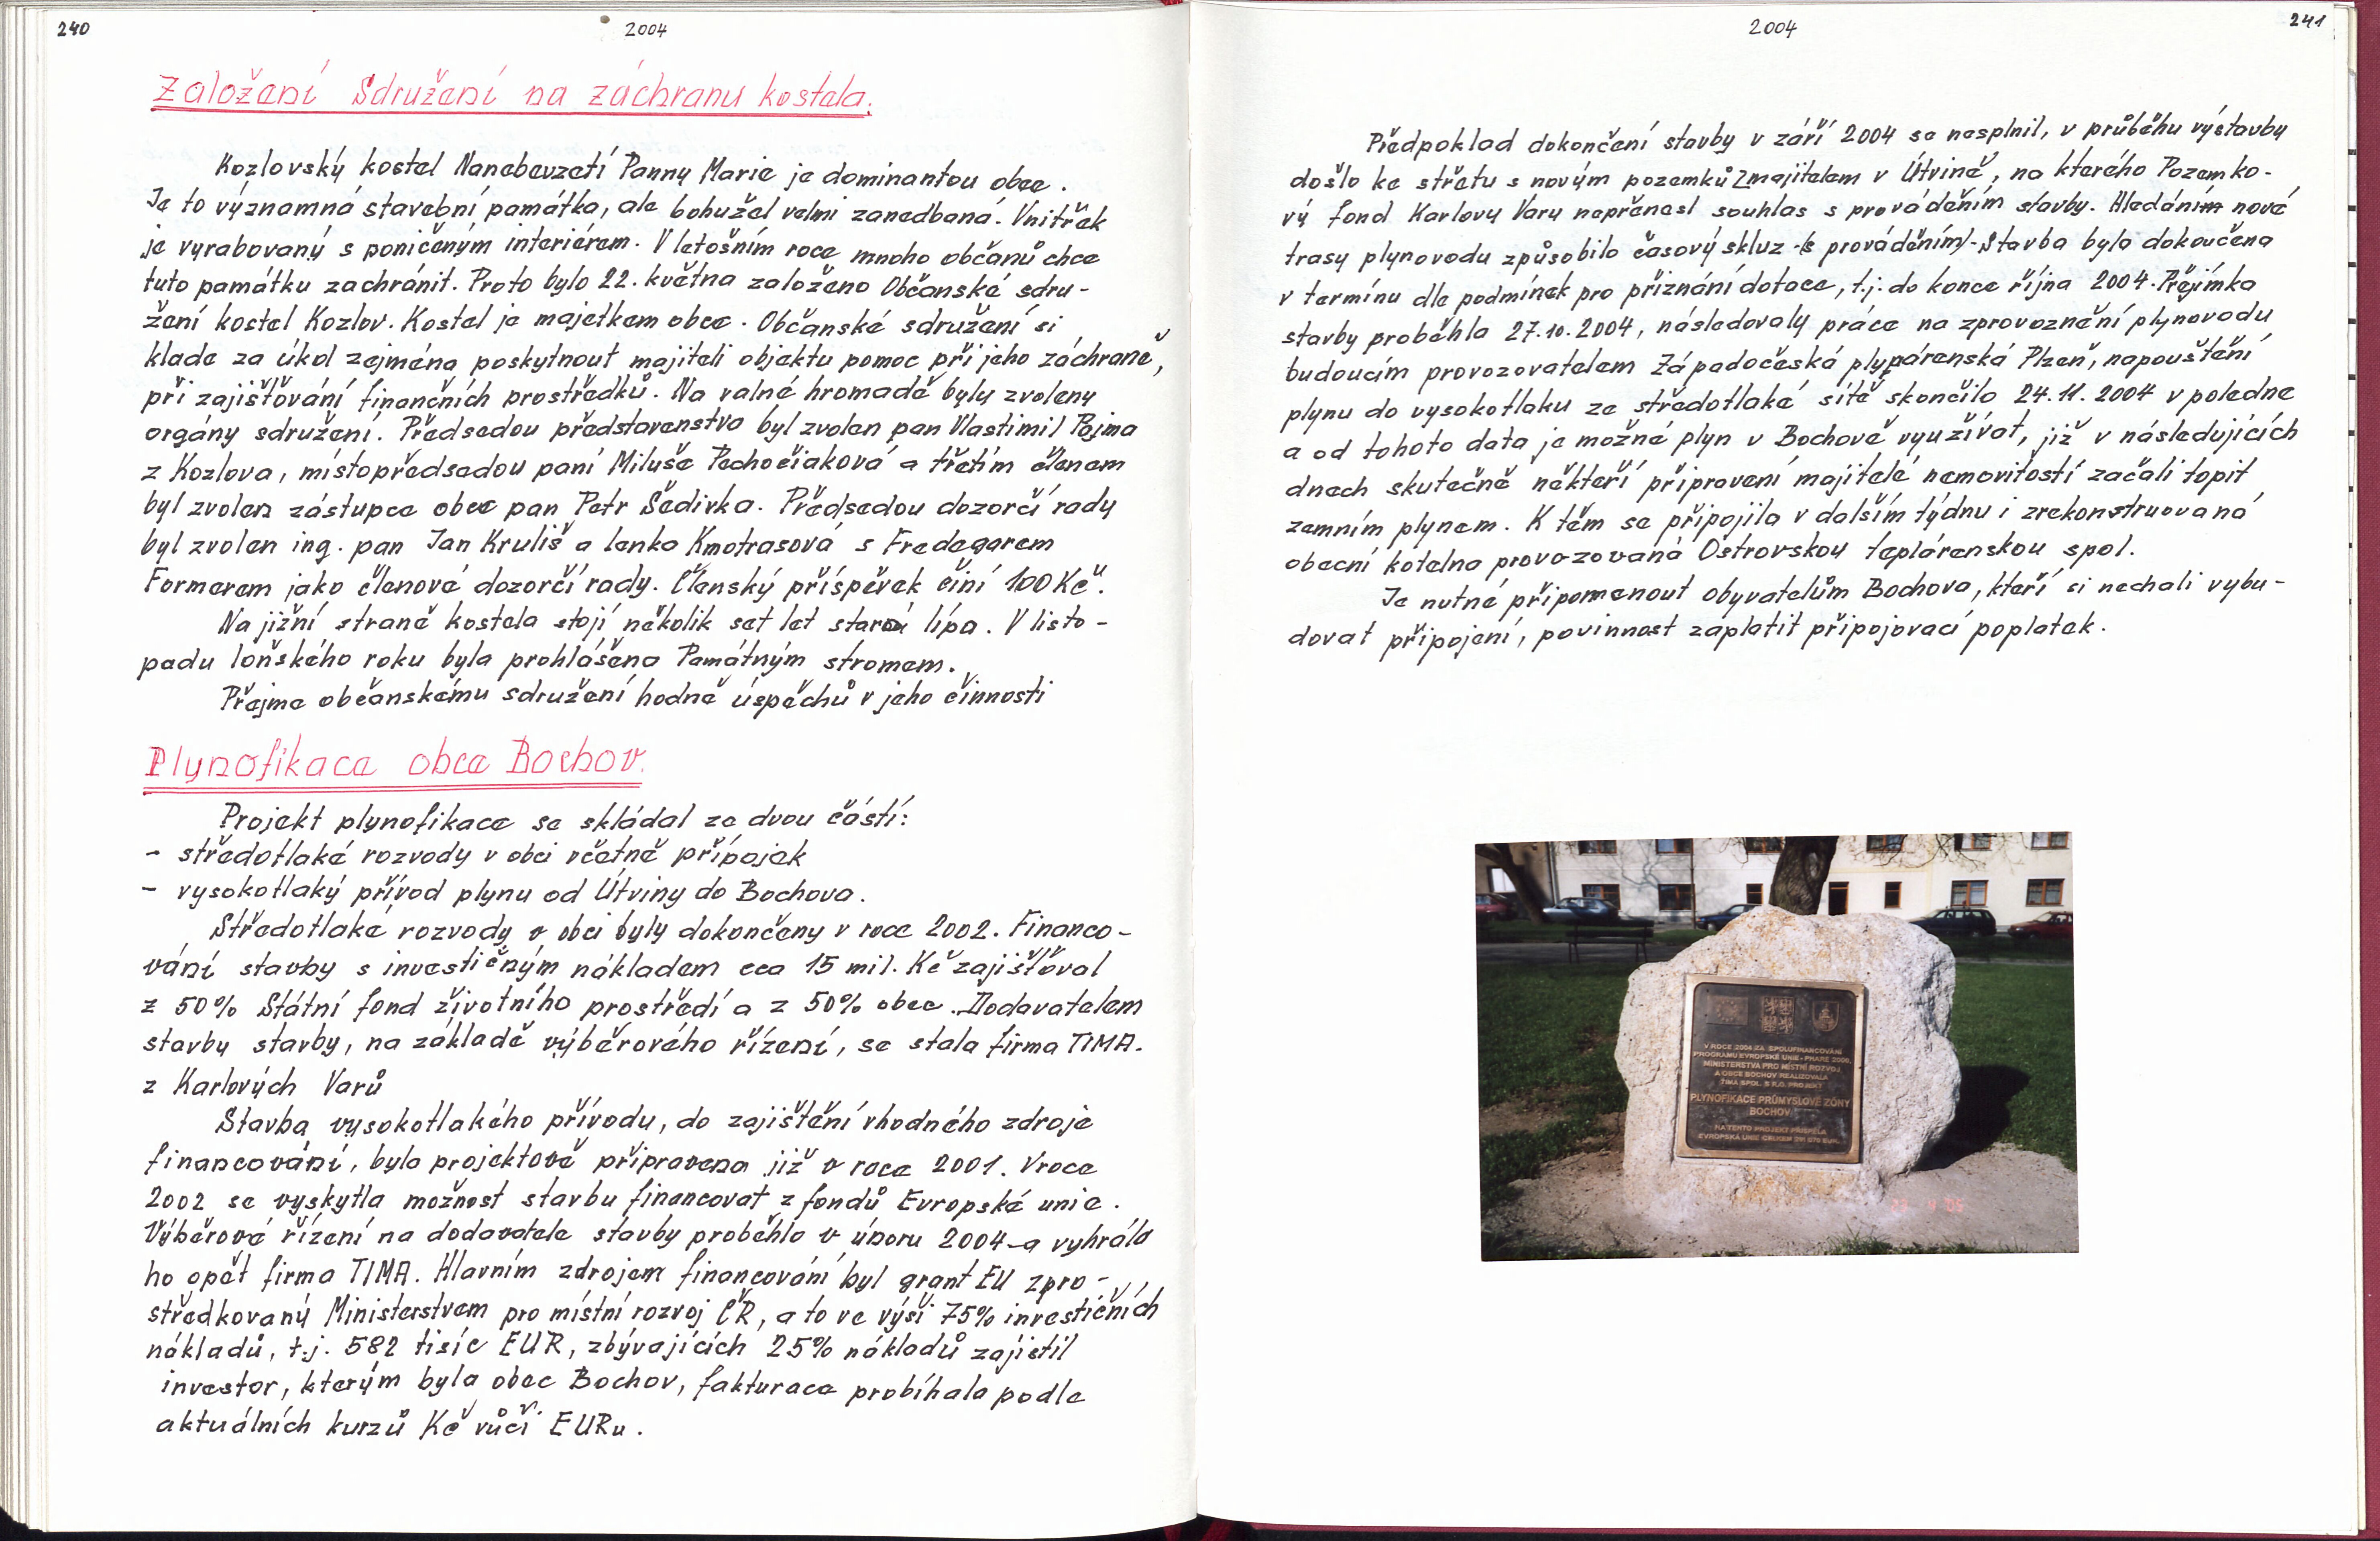 240
2004
Založení Sdružení na záchranu kostela.
Kozlovský kostel Nanebevzetí Panny Marie je dominantou obce.
Je to významná stavební památka, ale bohužel velmi zanedbaná. Vnitřek
je vyrabovaný s poničeným interiérem. V letošním roce mnoho občanů chce
tuto památku zachránit. Proto bylo 22. května založeno Občanské sdru-
žení kostel Kozlov. Kostel je majetkem obce. Občanské sdružení si
klade za úkol zejména poskytnout majiteli objektu pomoc při jeho záchraně,
při zajišťování finančních prostředků. Na valné hromadě byly zvoleny
orgány sdružení. Předsedou představenstva byl zvolen pan Vlastimil Pojma
z Kozlova, místopředsedou paní Miluše Pechočiaková a třetím členem
byl zvolen zástupce obce pan Petr Šedivka. Předsedou dozorčí rady
byl zvolen ing. pan Jan Kruliš a lenka Kmotrasová s Fredegarem
Formerem jako členové dozorčí rady. Členský příspěvek činí 100 Kč.
Na jižní straně kostela stojí několik set let stará lípa. V listo-
padu loňského roku byla prohlášena Památným stromem.
Přejme občanskému sdružení hodně úspěchů v jeho činnosti
Plynofikace obce Bochov.
Projekt plynofikace se skládal ze dvou částí:
- středotlaké rozvody v obci včetně přípojek
- vysokotlaký přívod plynu od Útviny do Bochova.
Středotlaké rozvody v obci byly dokončeny v roce 2002. Financo-
vání stavby s investičným nákladem cca 15 mil. Kč zajišťoval
z 50% Státní fond životního prostředí a z 50% obec. Dodavatelem
stavby stavby, na základě výběrového řízení, se stala firma TIMA.
z Karlových Varů
Stavba vysokotlakého přívodu, do zajištění vhodného zdroje
financování, byla projektově připravena již v roce 2001. V roce
2002 se vyskytla možnost stavbu financovat z fondů Evropské unie.
Výběrové řízení na dodavatele stavby proběhlo v únoru 2004 a vyhrála
ho opět firma TIMA. Hlavním zdrojem financování byl grant EU zpro-
středkovaný Ministerstvem pro místní rozvoj ČR, a to ve výši 75% investičních
nákladů, t.j. 582 tisíc EUR, zbývajících 25% nákladů zajistil
investor, kterým byla obec Bochov, fakturace probíhala podle
aktuálních kurzů Kč vůči EURu.
2004
241
Předpoklad dokončení stavby v září 2004 se nesplnil, v průběhu výstavby
došlo ke střetu s novým pozemků majitelem v Útvině, na kterého Pozemko-
vý fond Karlovy Vary nepřenesl souhlas s prováděním stavby. Hledáním nové
trasy plynovodu způsobilo časový skluz (s prováděním). Stavba byla dokončena
v termínu dle podmínek pro přiznání dotace, t.j. do konce října 2004. Přejímka
stavby proběhla 27.10.2004, následovaly práce na zprovoznění plynovodu
budoucím provozovatelem Západočeská plynárenská Plzeň, napouštění
plynu do vysokotlaku ze středotlaké sítě skončilo 24.11.2004 v poledne
a od tohoto data je možné plyn v Bochově využívat, již v následujících
dnech skutečně někteří připravení majitelé nemovitostí začali topit
zemním plynem. K těm se připojila v dalším týdnu i zrekonstruovaná
obecní kotelna provozovaná Ostrovskou teplárenskou spol.
Je nutné připomenout obyvatelům Bochova, kteří si nechali vybu-
dovat připojení, povinnost zaplatit připojovací poplatek.
V ROCE 2004 ZA SPOLUFINANCOVÁNÍ
PROGRAMU EVROPSKÉ UNIE - PHARE 2000,
MINISTERSTVA PRO MÍSTNÍ ROZVOJ
A OBCE BOCHOV REALIZOVALA
TIMA SPOL. S R.O. PROJEKT
PLYNOFIKACE PRŮMYSLOVÉ ZÓNY
BOCHOV
NA TENTO PROJEKT PŘISPĚLA
EVROPSKÁ UNIE CELKEM EUR.